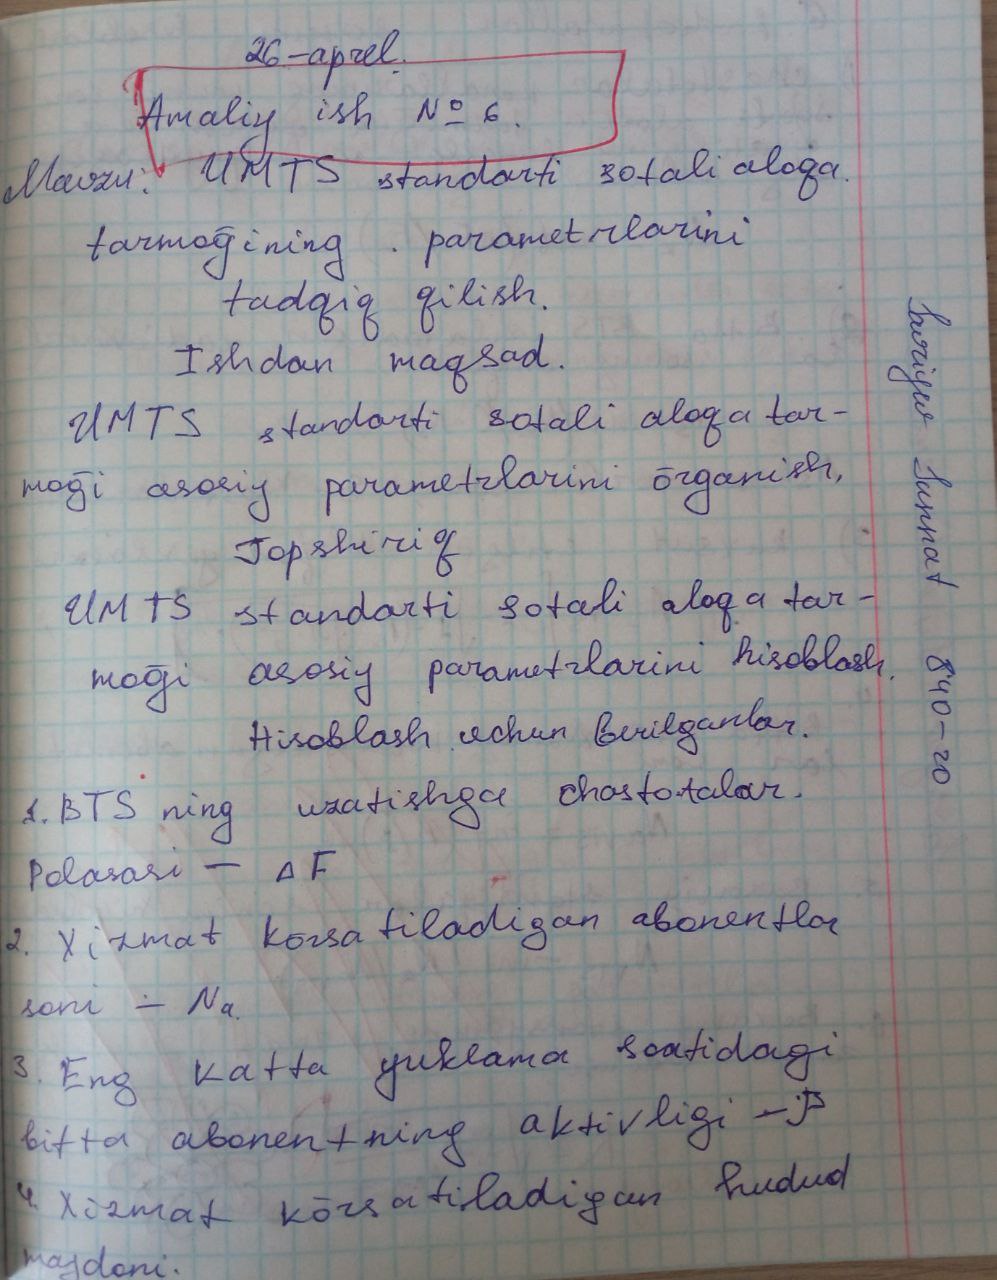 26-aprel.
Amaliy ish № 6.
Mavzu: UMTS standarti sotali aloqa
tarmoḡining parametrlarini
tadqiq qilish.
Ishdan maqsad.
UMTS standarti sotali aloqa tar-
moḡi asosiy parametrlarini ōrganish,
Topshiriq
UMTS standarti sotali aloqa tar-
moḡi asosiy parametrlarini hisoblash.
Hisoblash uchun Berilganlar.
1. BTS ning uzatishga chastotalar.
Polasasi - ΔF
2. Xizmat kōrsatiladigan abonentlar
soni - Na.
3. Eng katta yuklama soatidagi
bitta abonentning aktivligi - β
4. Xizmat kōrsatiladigan hudud
maydoni.
Sunnat 840-20